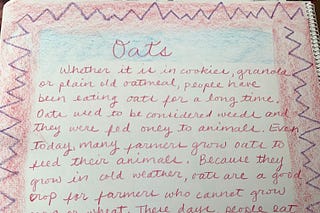 Oats
Whether it is in cookies, granola
or plain old oatmeal, people have
been eating oats for a long time.
Oats used to be considered weeds and
they were fed only to animals. Even
today, many farmers grow oats to
feed their animals. Because they
grow in cold weather, oats are a good
crop for farmers who cannot grow
or wheat. These days, people eat